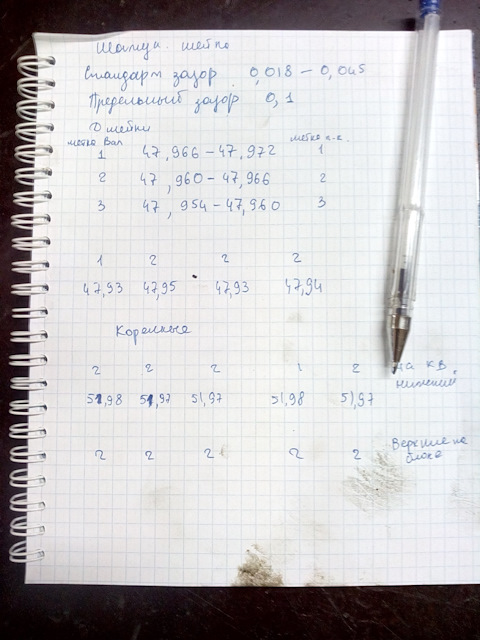 Шатун. шейка
Стандарт зазор 0,018 – 0,045
Предельный зазор 0,1
D шейки
метка Вал
1 47,966 – 47,972 1
2 47,960 – 47,966 2
3 47,954 – 47,960 3
1 2 2 2
47,93 47,95 47,93 47,94
Коренные
2 2 2 1 2 на КВ
нижний
51,98 51,97 51,97 51,98 51,97
2 2 2 2 2 Верхние на
блоке